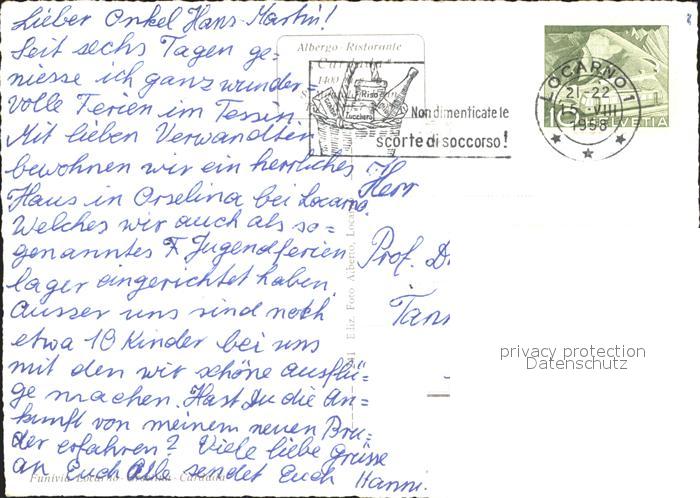 Lieber Onkel Hans-Martin!
Seit sechs Tagen ge=
niesse ich ganz wunder=
volle Ferien im Tessin.
Mit lieben Verwandten
bewohnen wir ein herrliches
Haus in Orselina bei Locarno.
Welches wir auch als so=
genanntes F Jugendferien
lager eingerichtet haben.
Ausser uns sind noch
etwa 10 Kinder bei uns
mit den wir schöne Ausflü=
ge machen. Hast Du die An=
kunft von meinem neuen Bru=
der erfahren? Viele liebe Grüsse
an Euch Alle sendet Euch Hanni.
Albergo - Ristorante
Riso
Zucchero
Non dimenticate le
scorte di soccorso!
LOCARNO 1
21-22
15.-VIII
1958
10 HELVETIA
Herr
Prof. D
Tann
Eliz. Foto Alberto, Locarno
Funivia Locarno - Orselina - Cardada
privacy protection
Datenschutz